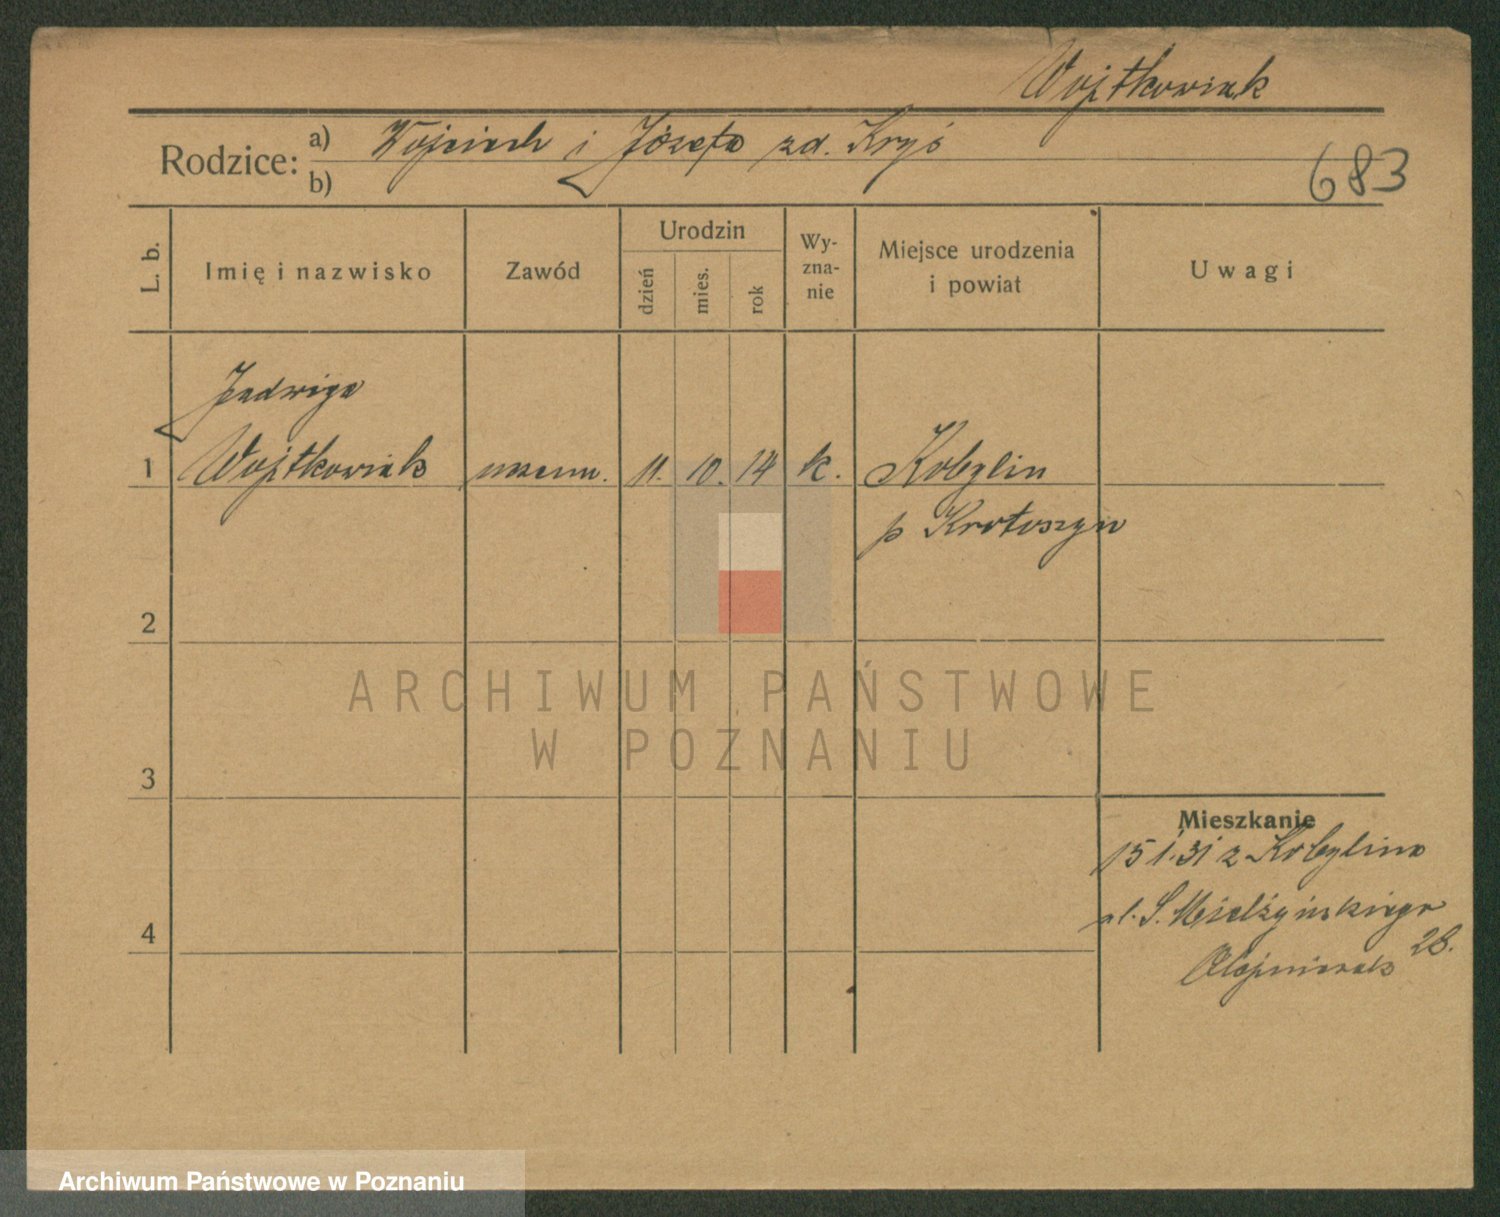 Wojtkowiak
Rodzice: a) Wojciech i Józefa zd. Kryś
b)
683
L. b.
Imię i nazwisko
Zawód
Urodzin
dzień
mies.
rok
Wy-
zna-
nie
Miejsce urodzenia
i powiat
Uwagi
Jadwiga
1 Wojtkowiak uczenn. 11. 10. 14 k. Kobylin
p Krotoszyn
2
ARCHIWUM PAŃSTWOWE
W POZNANIU
3
Mieszkanie
15 1. 31 z Kobylina
ul. S. Mielżyńskiego
28.
4
Archiwum Państwowe w Poznaniu